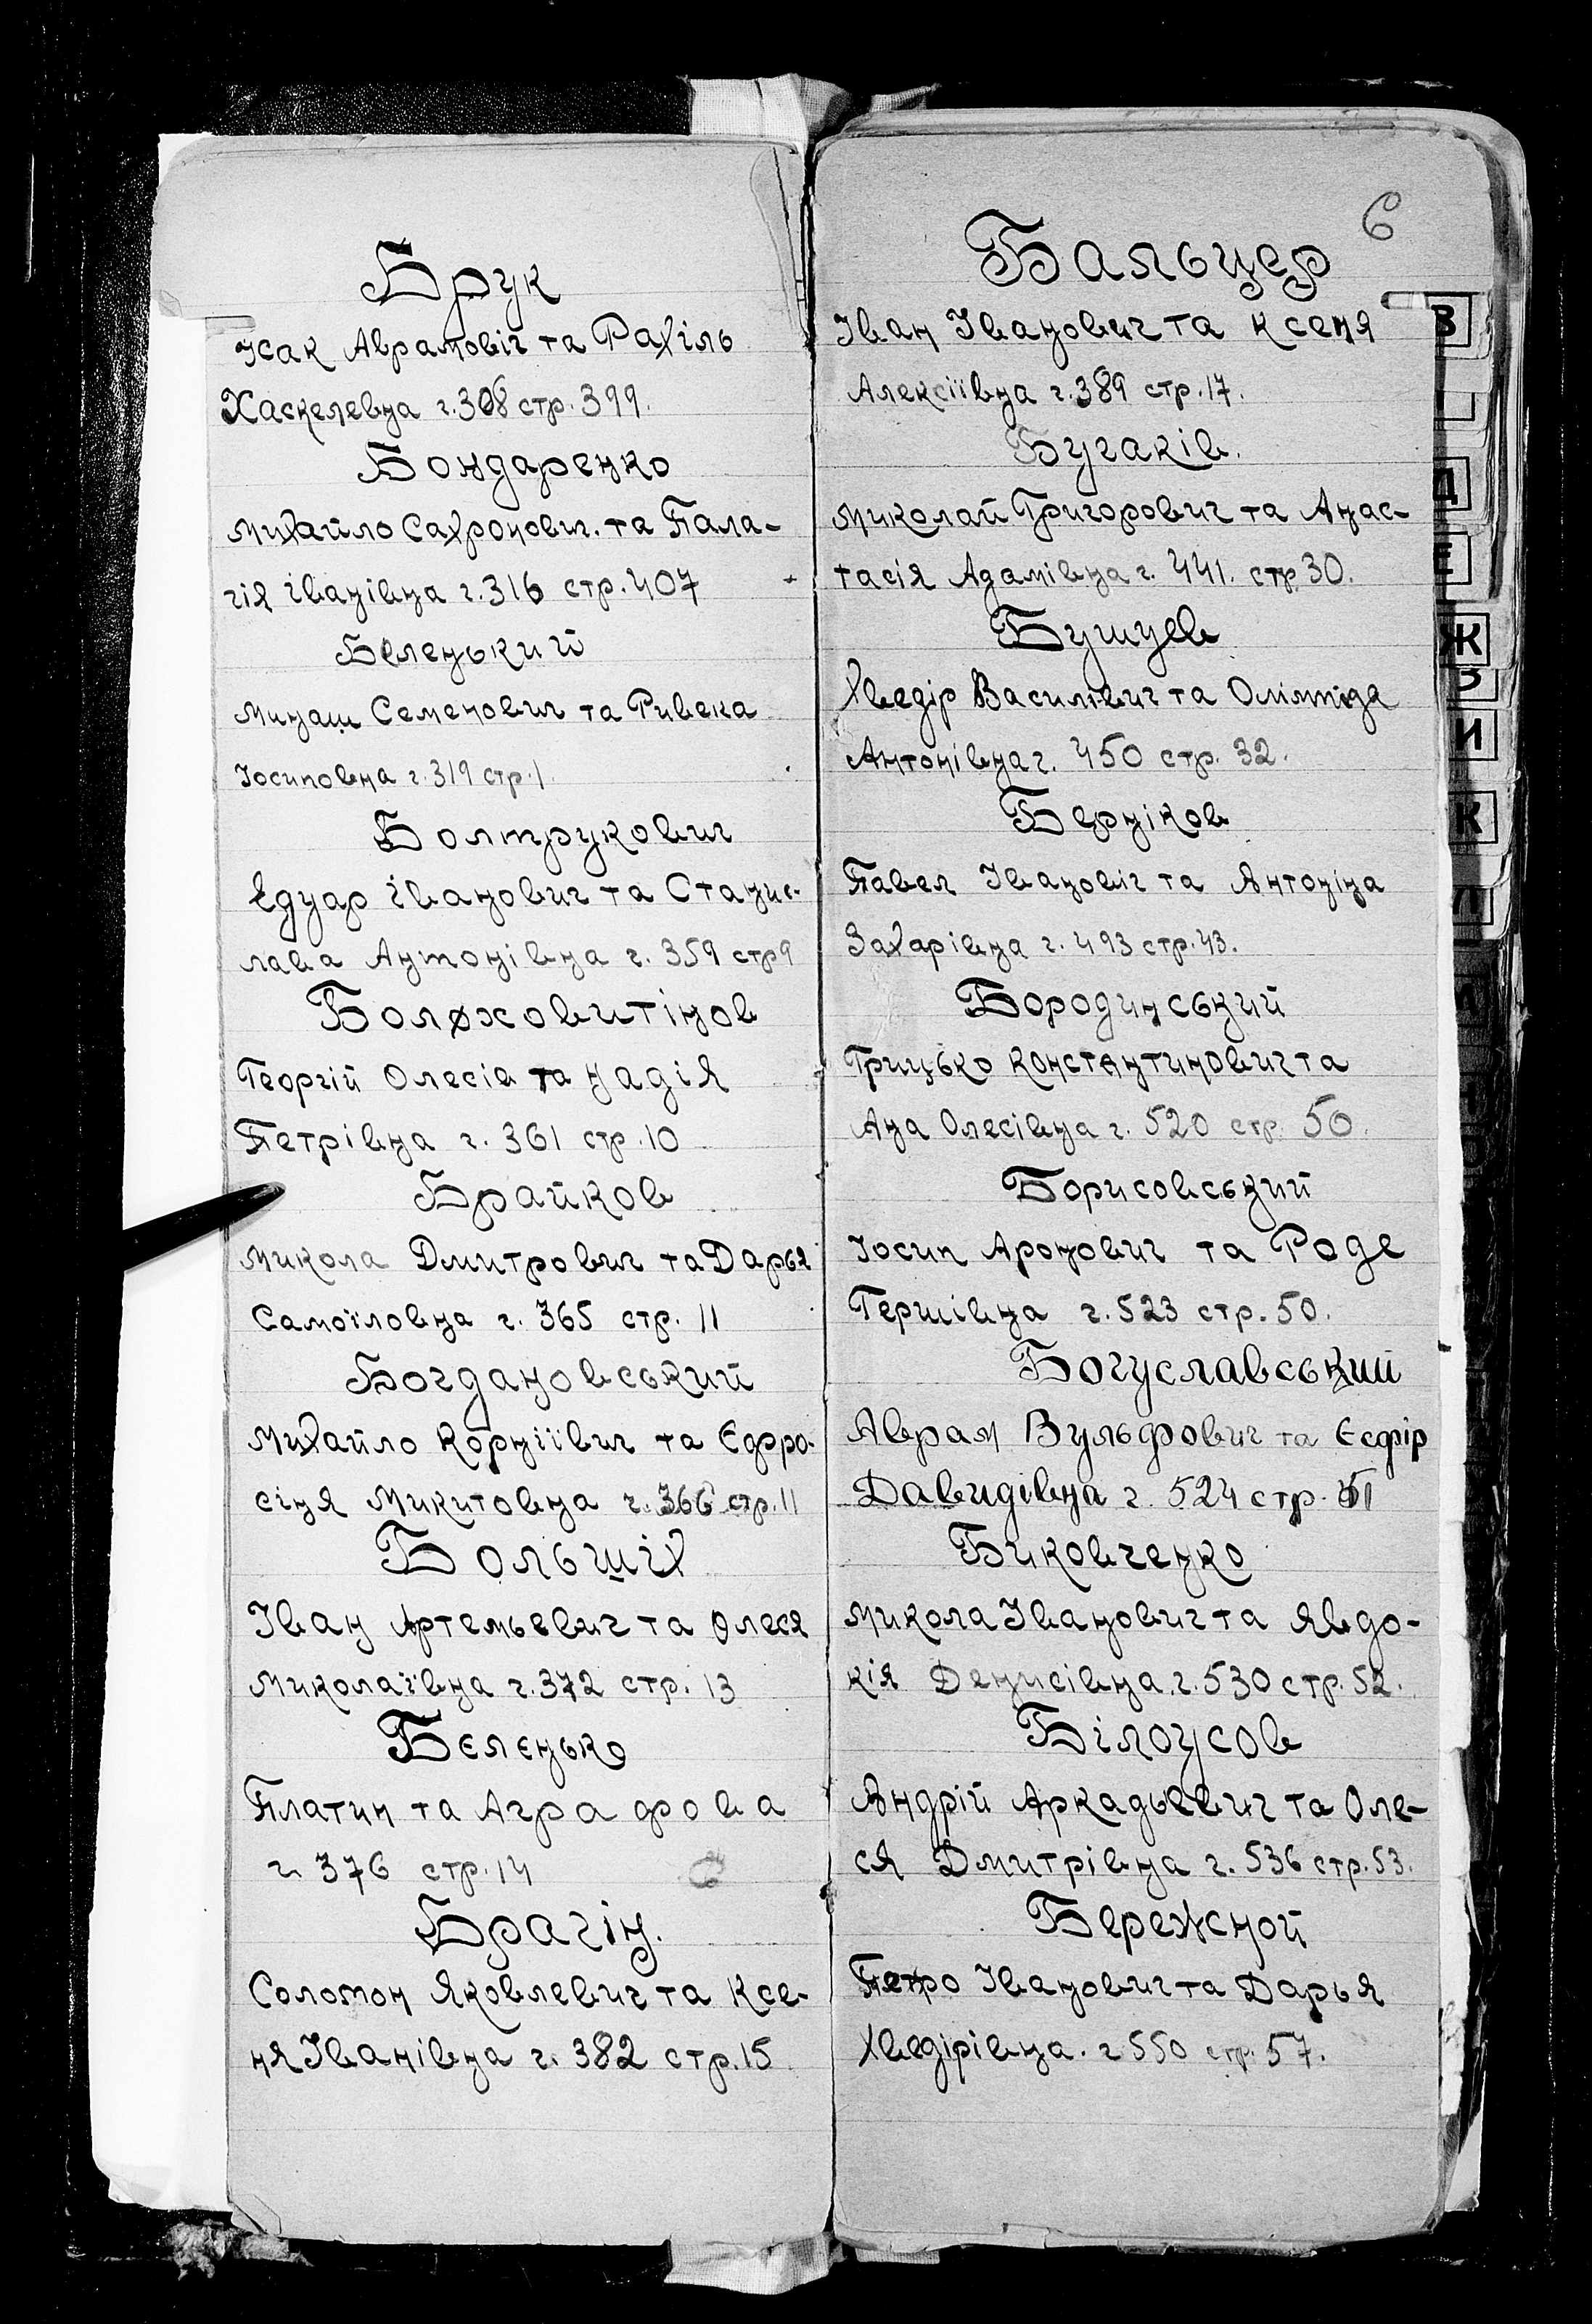 Брук
Ісак Аврамовіч та Рахіль
Хаскелевна ч. 308 стр. 399.
Бондаренко
Михайло Сахронович. та Пала-
гія іванівна ч. 316 стр. 407
Беленький
Минаш Семенович та Ривека
Іосиповна ч. 319 стр. 1.
Болтрукович
Едуар іванович та Станис-
лава Антонівна ч. 359 стр 9
Болховитінов
Георгій Олесів та Надія
Петрівна ч. 361 стр. 10
Брайков
Микола Дмитрович та Дарья
Самоіловна ч. 365 стр. 11
Богдановський
Михайло Корніївич та Єфро-
сіня Микитовна ч. 366 стр. 11
Больших
Іван Артемьевич та Олеся
Миколаївна ч. 372 стр. 13
Бєлєнько
Платин та Аграфова
ч. 376 стр. 14
Брагін.
Соломон Яковлевич та Ксе-
ня Іванівна ч. 382 стр. 15
6
Бальцер
Іван Іванович та Ксеня
Алексіївна ч. 389 стр. 17.
Бугаків.
Миколай Григорович та Анас-
тасія Адамівна ч. 441. стр 30.
Бушуев
Хведір Василівич та Олімпіда
Антонівна ч. 450 стр. 32.
Берніков
Павел Івановіч та Антоніна
Захарівна ч. 493 стр. 43.
Бородинський
Грицько Константинович та
Ана Олесівна ч. 520 стр. 50.
Борисовський
Іосип Аронович та Роде
Гершівна ч. 523 стр. 50.
Богуславський
Аврам Вульфович та Єсфір
Давидівна ч. 524 стр. 51
Биковченко
Микола Іванович та Явдо-
кія Денисівна. ч. 530 стр. 52.
Білоусов
Андрій Аркадьевич та Оле-
ся Дмитрівна ч. 536 стр. 53.
Бережной
Петро Іванович та Дарья
Хведірівна. ч 550 стр. 57.
В
Д
Е
Ж
З
И
К
Л